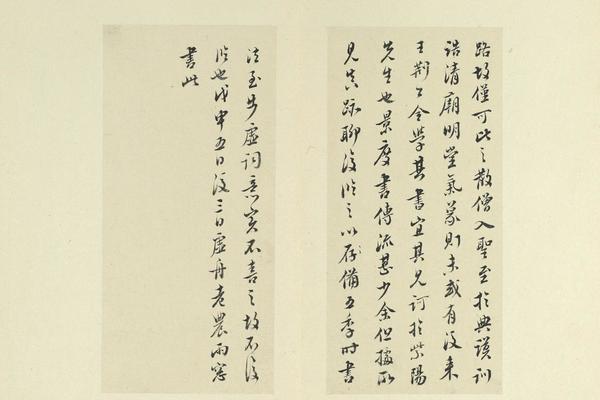 路故僅可比之散僧入聖至於典謨訓
誥清廟明堂氣象則未或有汲来
王荊公全學其書宜其見訶於紫陽
先生也景度書傳流甚少余但據所
見真跡聊復臨之以存備五季時書
法至步虛詞意實不喜之故不復
臨也戊申五日後三日虛舟老農雨窓
書此